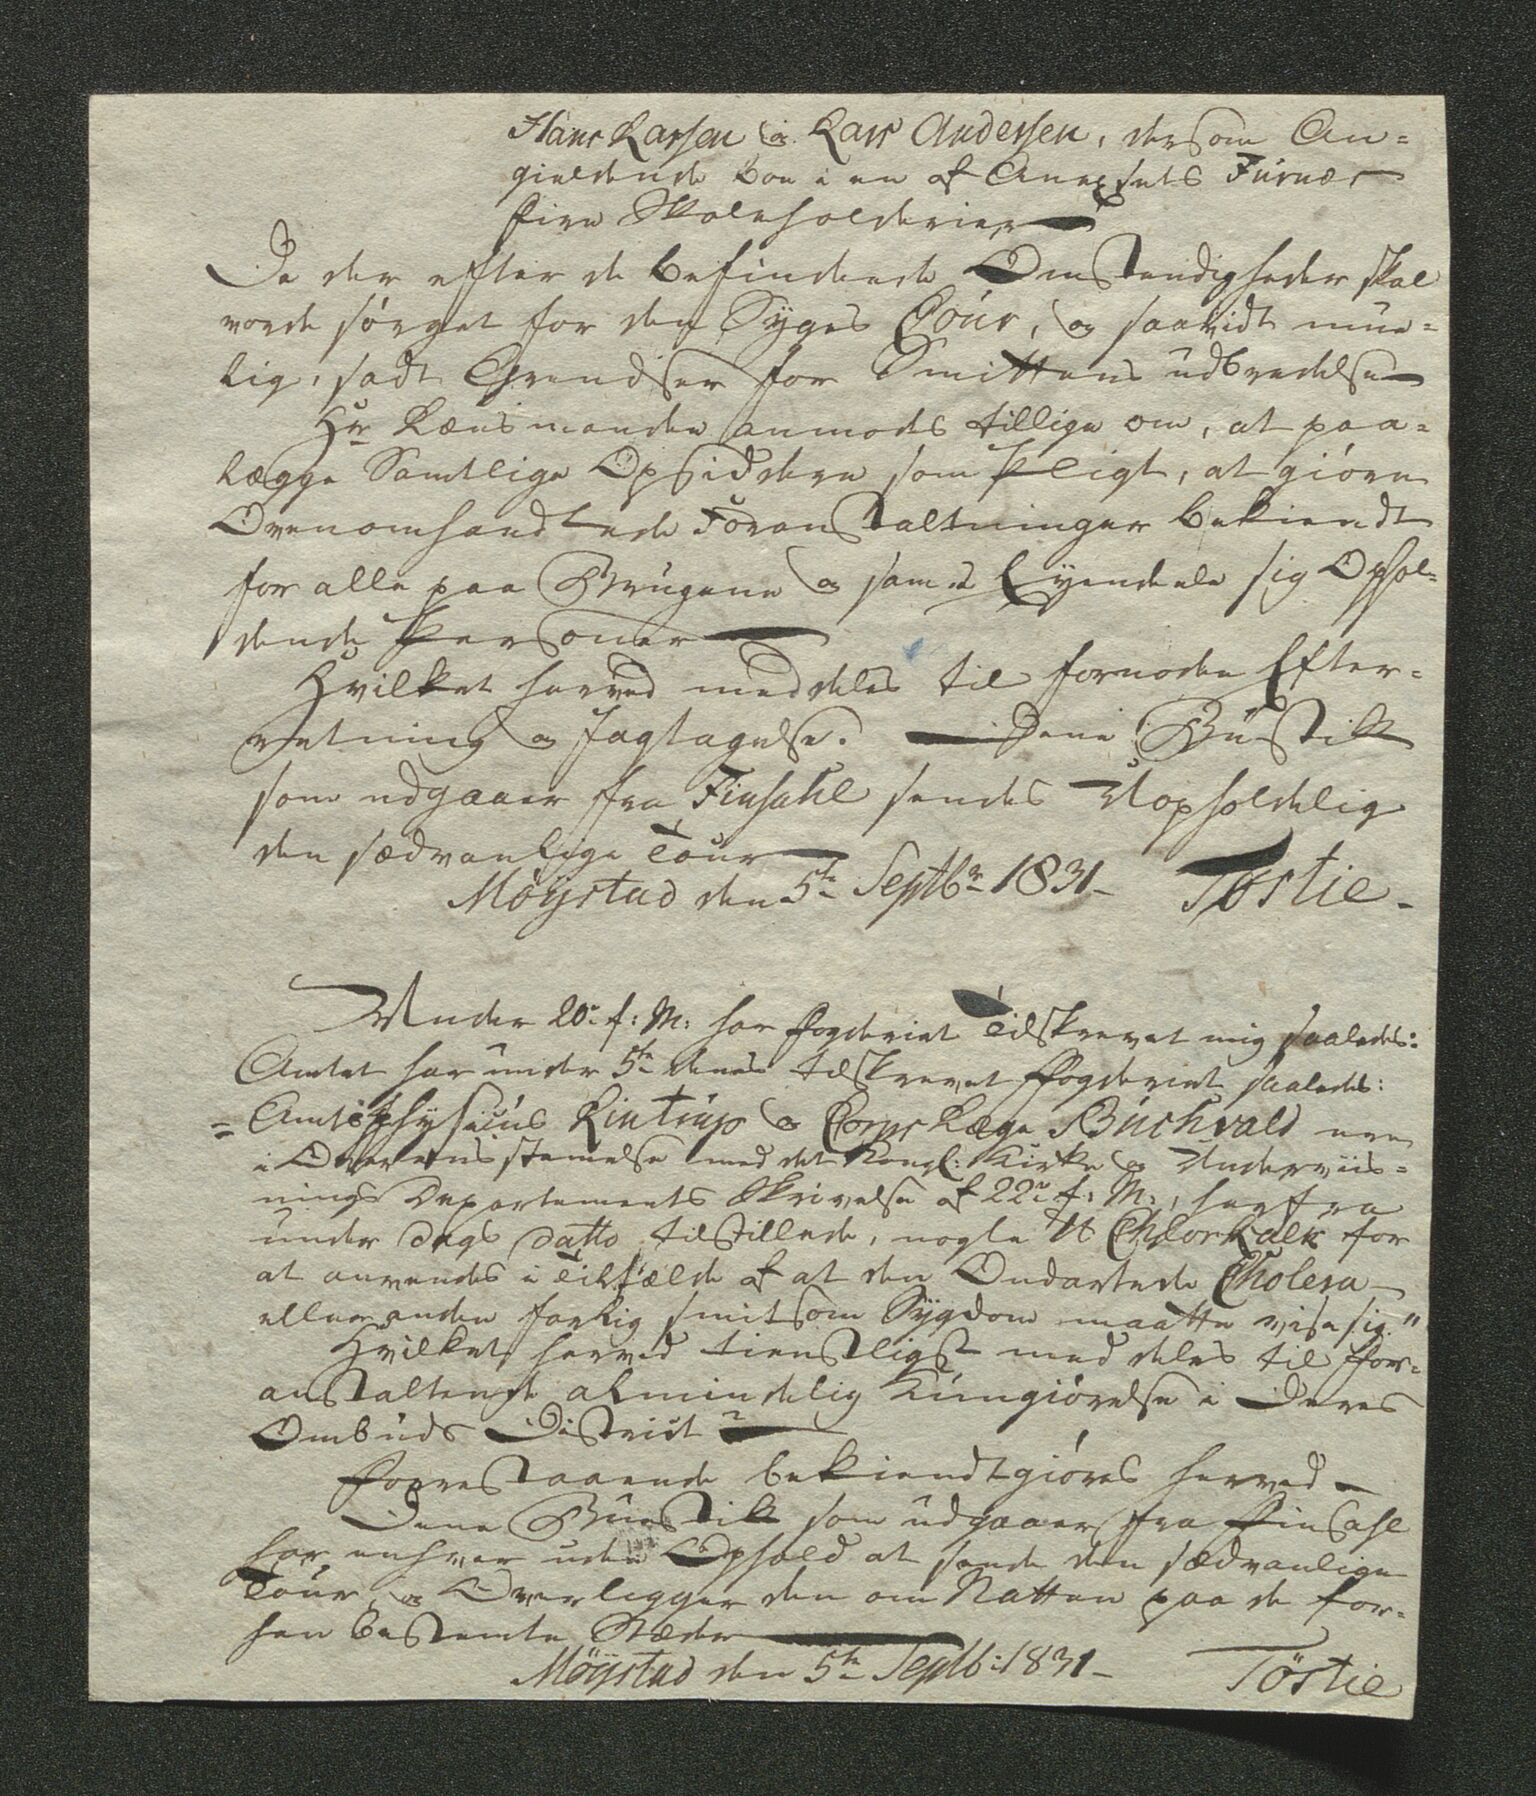 Hans Larsen og Lars Andersen, dersom An-
gieldende boe i en af Anexets Furnæs
fire Skoleholderier
Da der efter de befindende Omstændigheder skal
vorde sørget for den Syges Cour, og saavidt mue-
lig, sadt Grendser for Smittens udbredelse
Hr Lænsmanden anmodes tillige om, at paa-
lægge Samtlige Opsiddere som Pligt, at giøre
Ovenomhandlede Foranstaltninger bekiendt
for alle paa Brugene og sammes Eyendele sig Ophol-
dende Personer
Hvilket herved meddeles til fornøden Efter-
retning og Iagtagelse. Dene Budstik
som udgaaer fra Finsahl sendes Uopholdelig
den sædvanlige Tour
Møystad den 5te Septbr 1831 Tøstie
Under 20. f: M: har Fogderiet Tilskrevet mig saaledes:
Amtet har under 5te denes tilskrevet Fogderiet saaledes:
= Amtsphysicus Lintrup og Corpslæge Buchvald ere
i Overensstemelse med det Kongl: Kirke og Underviis-
nings Departements Skrivelse af 22. f: M:, herfra
under Dags Datto tilstillede, nogle ℔ Chlorkalk for
at anvendes i Tilfælde af at den Ondartede Cholera
eller anden farlig smitsom Sygdom maatte vise sig"
Hvilket herved tienstligst meddeles til for-
anstaltende almindelig Kungiørelse i Deres
Ombuds District
Forestaaende bekiendtgiøres herved
Dene Budstik som udgaaer fra Finsahl
har enhver uden Ophold at sende den sædvanlige
Tour, og Overligger den om Natten paa de for-
hen bestemte Stæder
Møystad den 5te Septb: 1831 Tøstie